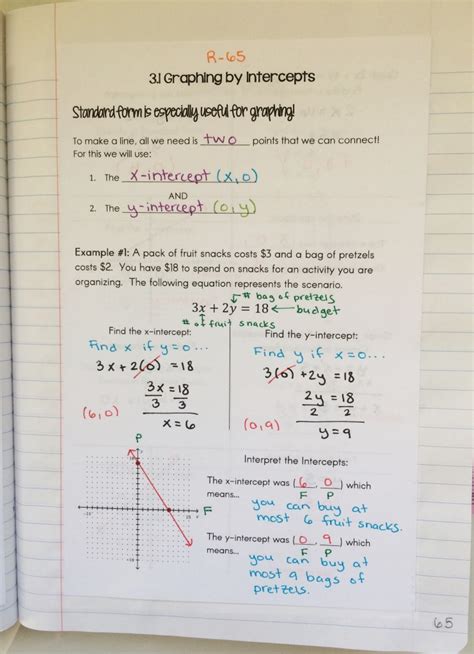 R-65
3.1 Graphing by Intercepts
Standard form is especially useful for graphing!
To make a line, all we need is two points that we can connect!
For this we will use:
1. The x-intercept (x,0)
AND
2. The y-intercept (0,y)
Example #1: A pack of fruit snacks costs $3 and a bag of pretzels
costs $2. You have $18 to spend on snacks for an activity you are
organizing. The following equation represents the scenario.
# bag of pretzels
3x + 2y = 18 ← budget
# of fruit snacks
Find the x-intercept:
Find x if y=0...
3x + 2(0) = 18
3x = 18
3 3
(6,0)
x = 6
Find the y-intercept:
Find y if x=0...
3(0) + 2y = 18
2y = 18
2 2
(0,9)
y = 9
P
F
Interpret the Intercepts:
The x-intercept was (6, 0) which
means... F P
you can buy at
most 6 fruit snacks.
The y-intercept was (0, 9) which
means... F P
you can buy at
most 9 bags of
pretzels.
65